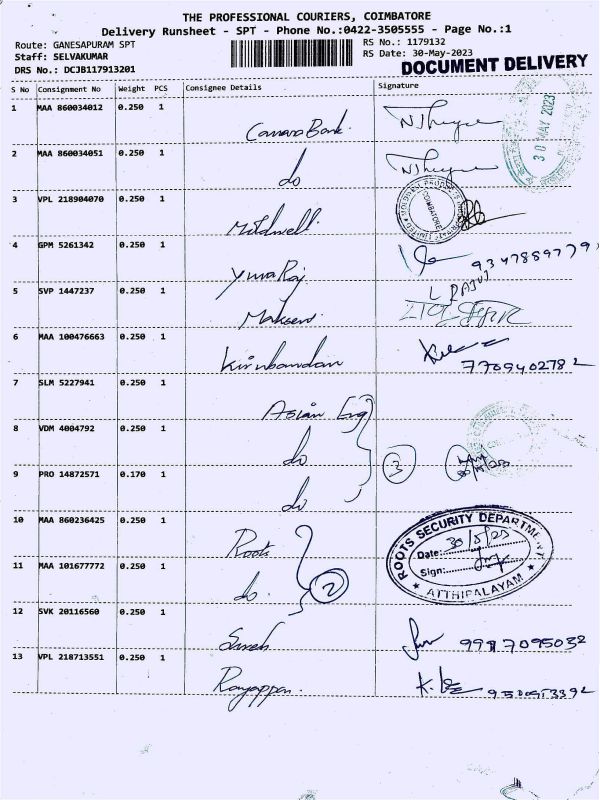 THE PROFESSIONAL COURIERS, COIMBATORE
Delivery Runsheet - SPT - Phone No.:0422-3505555 - Page No.:1
Route: GANESAPURAM SPT
Staff: SELVAKUMAR
DRS No.: DCJB117913201
RS No.: 1179132
RS Date: 30-May-2023
DOCUMENT DELIVERY
S No Consignment No Weight PCS Consignee Details Signature
30 MAY 2023
1 MAA 860034012 0.250 1 Canara Bank.
2 MAA 860034051 0.250 1 do
3 VPL 218904070 0.250 1 Mildwell.
COIMBATORE
4 GPM 5261342 0.250 1 Yuva Raj 9347889779
5 SVP 1447237 0.250 1 L RAJU
6 MAA 100476663 0.250 1 7709402782
7 SLM 5227941 0.250 1 Asian Eng
8 VDM 4004792 0.250 1 do 3
9 PRO 14872571 0.170 1 do
10 MAA 860236425 0.250 1 Roots
ROOTS SECURITY DEPARTMENT
Date: 30/5/23
Sign:
ATTHIPALAYAM
11 MAA 101677772 0.250 1 do. 2
12 SVK 20116560 0.250 1 Suresh 9987095032
13 VPL 218713551 0.250 1 Rayappan.